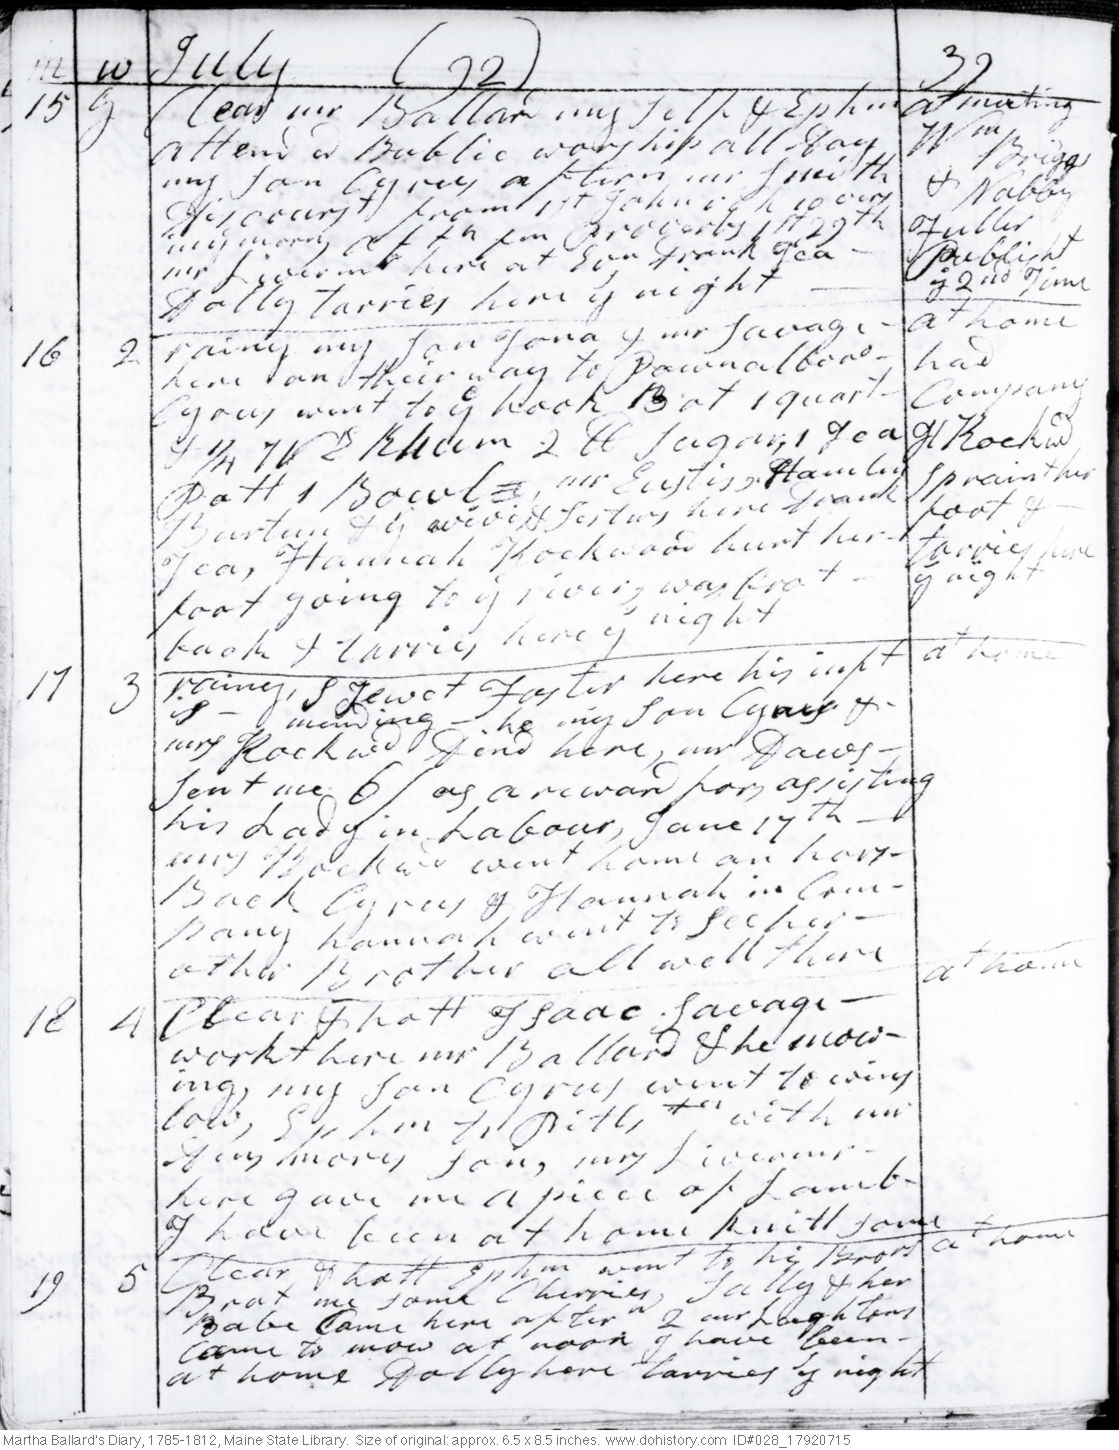 m w July (92) 39
15 g Clear mr Ballard my Self & Ephm
attend d Publ ic worship all Day
my Son Cyrus aftern mr Smith
Discourst from 1st John
morn aftn fm Proverbs 1st 29th
mr Livermr here at Evn Drank Tea -
Dolly tarries here ÿ night
at meeting
Wm Briggs
& Nabby
Fuller
Publisht
ÿ 2nd Time
16 2 rainy my Son Jona & mr Savage -
here on their way to Pownalboro -
Cyrus went to ÿ hook B ot 1 quart -
& 1/4 Rhum 2 lb Sugar, 1 Tea
Pott 1 Bowl, mr Eustiss, Hamlin
Burtun & ÿ wives & Sisters here Drank
Tea, Hannah Rockwood hurt her -
foot going to ÿ river, was brot -
back & tarries here ÿ night
at home
had
Company
H Rockwd
Spraint her
foot &
tarries here
ÿ night
17 3 rainy, S Jewet Foster here his inft
is - minding - he my Son Cyrus & -
mrs Rockwd Dind here, mr Daws -
Sent me 6/ as a reward for assisting
his Lady in Labour, Jane 17th -
mrs Rockwd went home on hors -
Back Cyrus & Hannah in Com -
pany hannah went to See her -
other Brother all well there
at home
18 4 Clear & hott Isaac Savage -
workt here mr Ballard & he mow -
ing, my Son Cyrus went to wins
low, Ephm to Pitts ton with mr
Dinsmores Son, mrs Livermr -
here gave me a piece of Lamb -
I have been at home knitt some
at home
19 5 Clear & hott Ephm went to his Brors
Brot me some Cherries, Sally & her
Babe Came here aftern 2 mr Laughtons
came to mow at noon I have been -
at home Dolly here tarries ÿ night
at home
Martha Ballard's Diary, 1785-1812, Maine State Library. Size of original: approx. 6.5 x 8.5 inches. www.dohistory.com ID#028_17920715